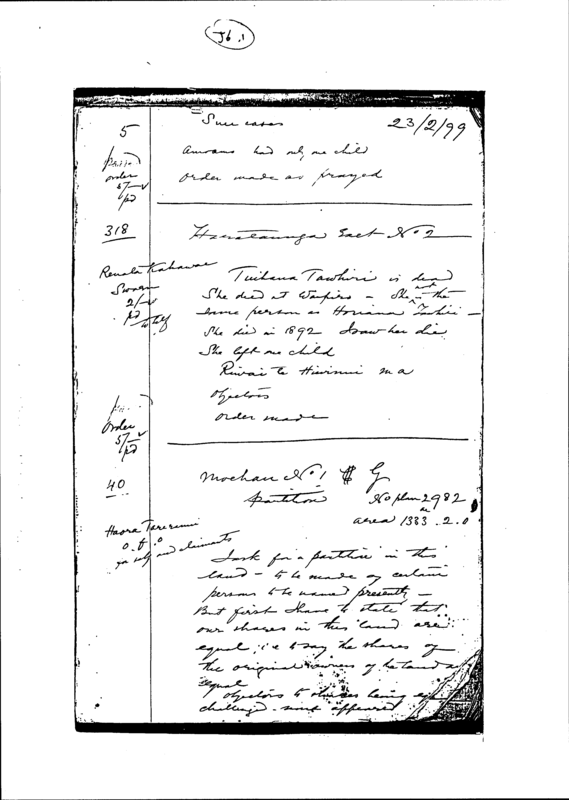 J6.1
5
Succ cases
23/2/99
had only one child
order
5/-
pd
order made as prayed
318
East No 2
Renata Kahawai
Sworn
2/-
pd
Tuihana Tawhiri is dead
She died at Waipiro - She is not the
same person as Horiana -
She died in 1892 I saw her die
She left one child
Riwai te Hiwinui m a
Objectors
order made
order
5/-
pd
40
Mochau No 1 G
partition
No plan 2982
area 1383.2.0
Haora
o.f.o
for self and claimants
I ask for a partition in this
land - to be made by certain
persons to be named presently -
But first I have to state that
our shares in this land are
equal, i.e. to say the shares of
the original owners of the land are
equal
Objectors to shares being
challenged - none appeared